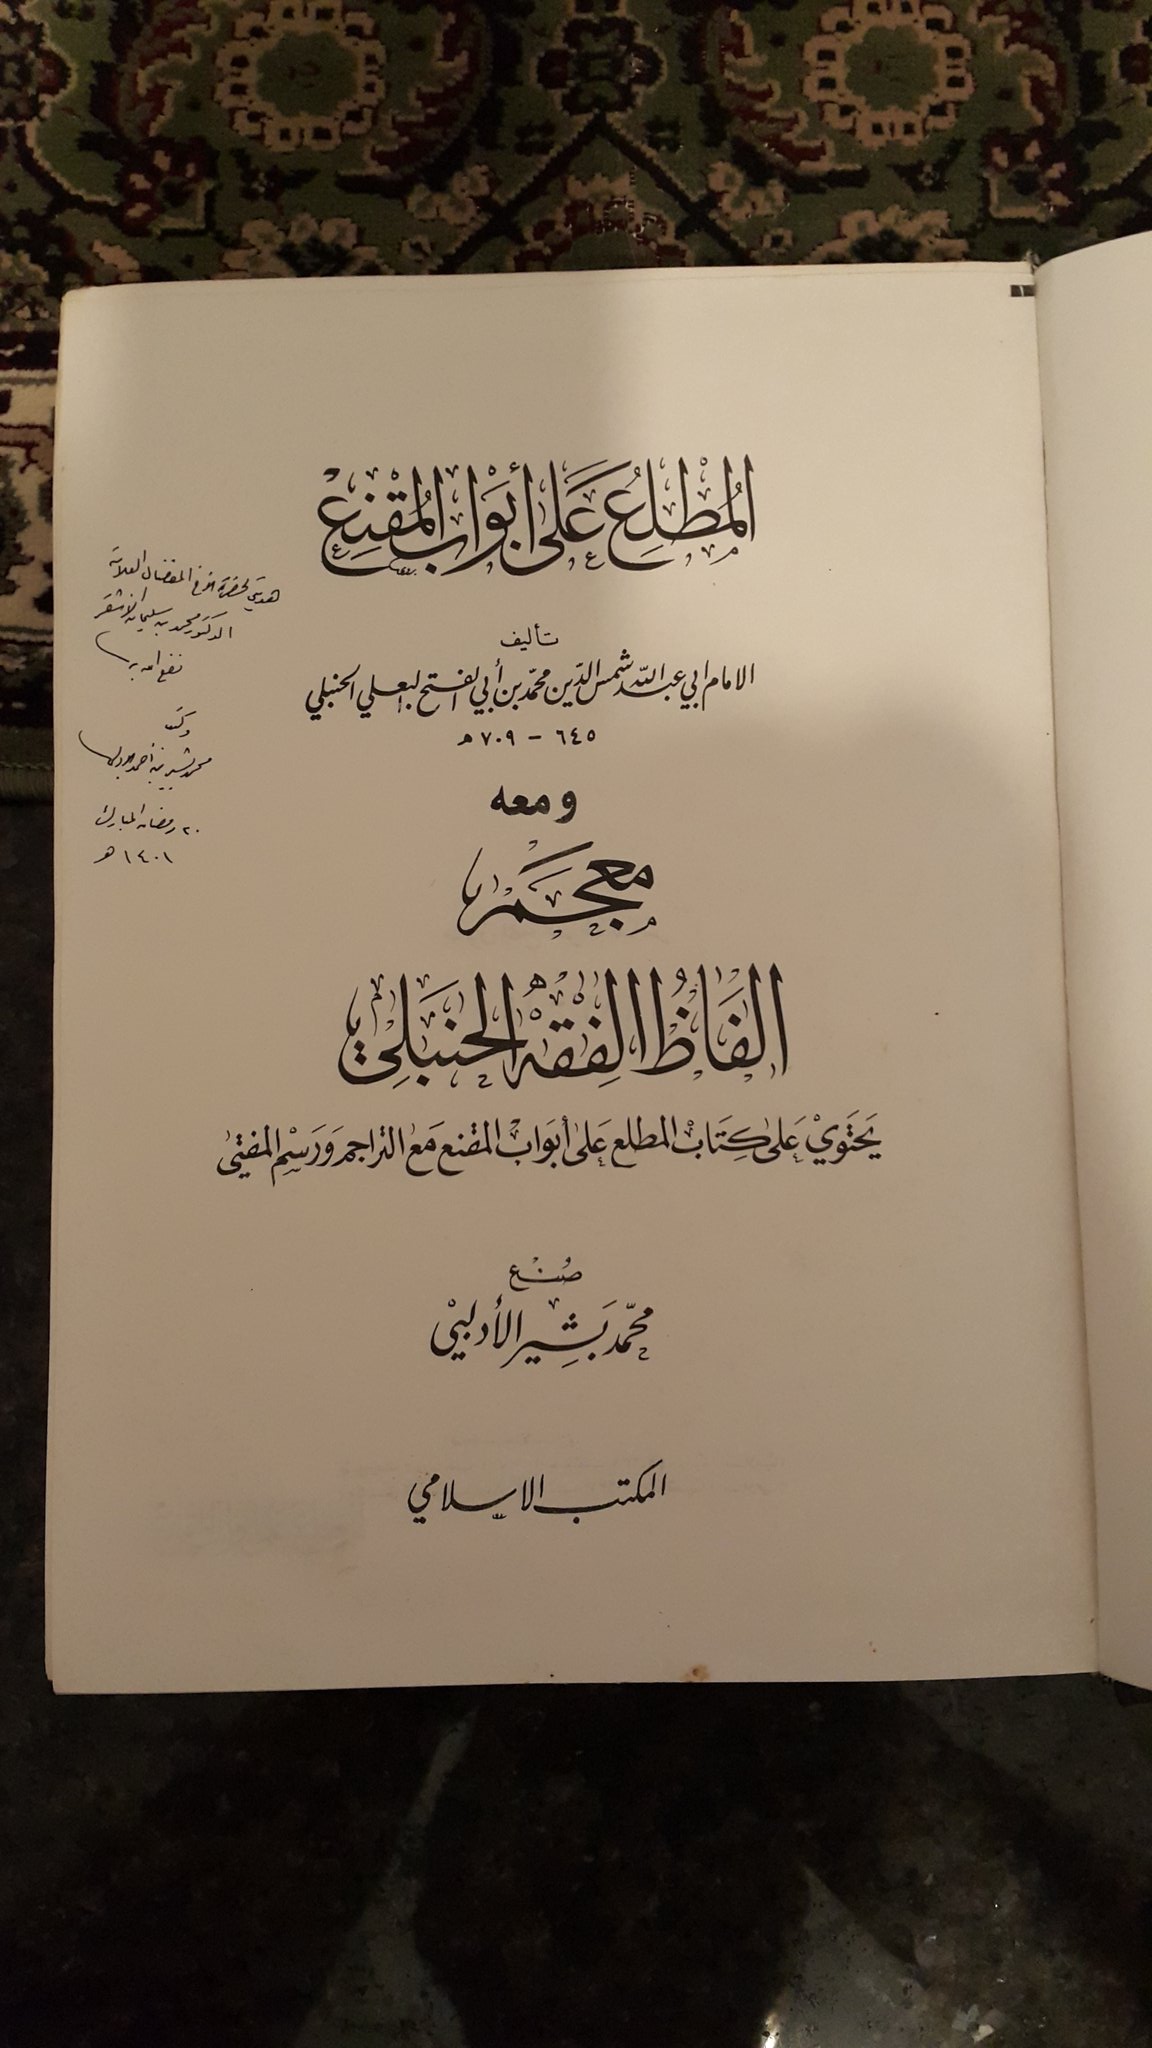 المُطْلِعُ عَلى أَبْوَابِ المُقْنِعْ
تأليف
الامام ابي عبد اللّه شمس الدّين محمّد بن أبي الفتح البعلي الحنبلي
٦٤٥ – ٧٠٩ هـ
ومعه
معجَم
الفَاظُ الفِقْهْ الحَنبَلِي
يَحتَويْ عَلى كِتَابْ المطلع عَلى أبوَابْ المقنع مَع التراجم وَرَسْم المفتي
صُنْع
محمّد بَشِير الأدلبيْ
المكتب الاسلامي
هدية لحضرة الأخ المفضال العلامة
الدكتور محمد بن سليمان الأشقر
نفع الله به
وكتب
محمد بشير بن أحمد
٢٠ رمضان المبارك
١٤٠١ هـ